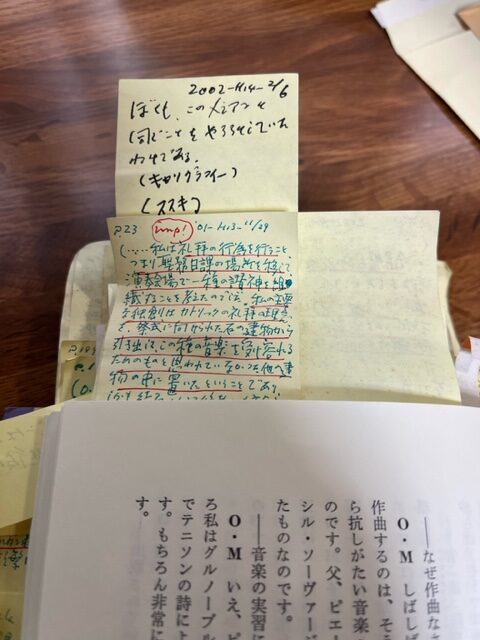 2002-H14-2/6
ぼくも、このメシアンと
同じことをやろうとしていた
わけである。
(キャリグラフィー)
(ススキ)
P.23 imp! '01-H13-11/29
(……私は礼拝の行為を行うこと、
つまり聖務日課の場所を移して、
演奏会場で一種の諸神を組
織することを考えたのです。私の主要
な独創はカトリックの礼拝の理念
を、祭式に向けられた石の建物から
引き出し、この種の音楽を受け容れる
ためのものと思われていなかった他の建
物の中に置いたということであり
——なぜ作曲な
O・M しばしば
作曲するのは、そう
ら抗しがたい音楽
のです。父、ピエ
シル・ソーヴァージ
たものなのです。
——音楽の実習に
O・M いえ、ピ
ろ私はグルノーブル
でテニソンの詩によ
す。もちろん非常に
す。